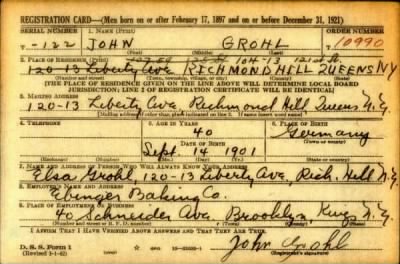 REGISTRATION CARD—(Men born on or after February 17, 1897 and on or before December 31, 1921)
SERIAL NUMBER 1. NAME (Print) ORDER NUMBER
T-122 JOHN GROHL 10990
(First) (Middle) (Last)
2. PLACE OF RESIDENCE (Print) 104-13 121st St.
120-13 Liberty Ave RICHMOND HILL QUEENS N.Y.
(Number and street) (Town, township, village, or city) (County) (State)
[THE PLACE OF RESIDENCE GIVEN ON THE LINE ABOVE WILL DETERMINE LOCAL BOARD
JURISDICTION; LINE 2 OF REGISTRATION CERTIFICATE WILL BE IDENTICAL]
3. MAILING ADDRESS
120-13 Liberty Ave. Richmond Hill Queens N.Y.
[Mailing address if other than place indicated on line 2. If same insert word same]
4. TELEPHONE 5. AGE IN YEARS 6. PLACE OF BIRTH
40 Germany
DATE OF BIRTH (Town or county)
Sept. 14 1901
(Exchange) (Number) (Mo.) (Day) (Yr.) (State or country)
7. NAME AND ADDRESS OF PERSON WHO WILL ALWAYS KNOW YOUR ADDRESS
Elsa Grohl, 120-13 Liberty Ave, Rich. Hill N.Y.
8. EMPLOYER'S NAME AND ADDRESS
Ebinger Baking Co.
9. PLACE OF EMPLOYMENT OR BUSINESS
40 Schneider Ave. Brooklyn, Kings N.Y.
(Number and street or R. F. D. number) (Town) (County) (State)
I AFFIRM THAT I HAVE VERIFIED ABOVE ANSWERS AND THAT THEY ARE TRUE.
D. S. S. Form 1
(Revised 3-1-42) John Grohl